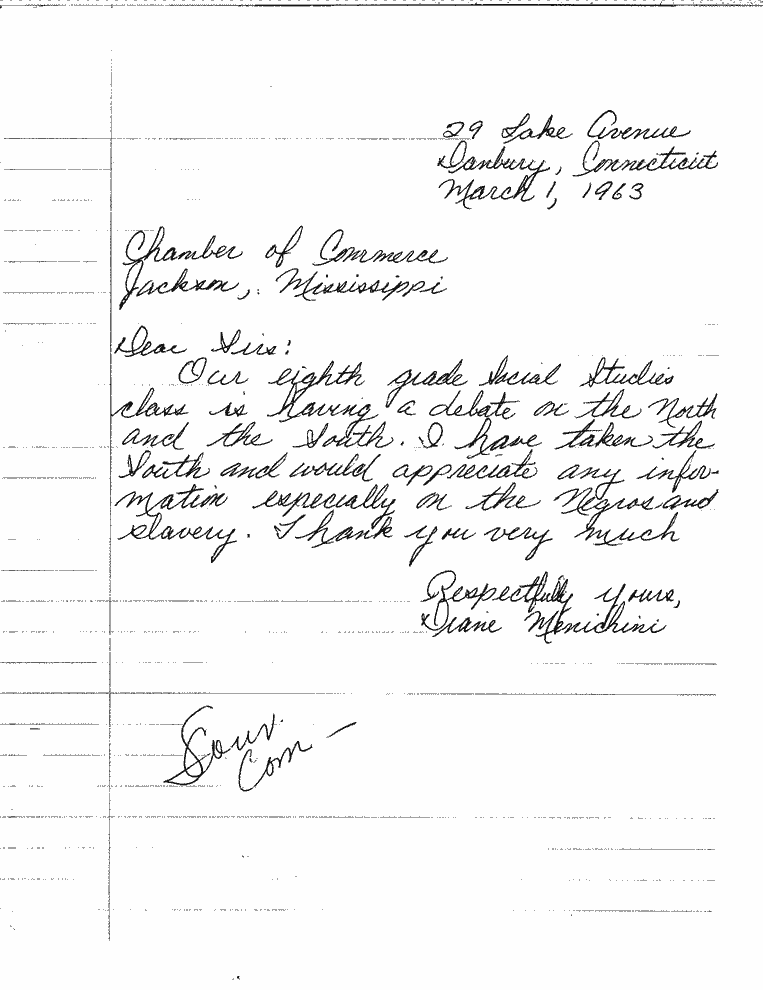 29 Lake Avenue
Danbury, Connecticut
March 1, 1963
Chamber of Commerce
Jackson, Mississippi
Dear Sirs:
Our eighth grade Social Studies
class is having a debate on the North
and the South. I have taken the
South and would appreciate any infor-
mation especially on the Negros and
slavery. Thank you very much
Respectfully yours,
Diane Menichini
Sour.
Com —